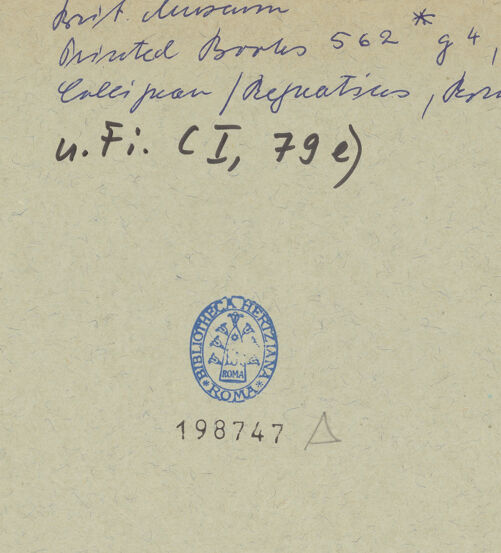 Brit. Museum
Printed Books 562 * g 4,
u. Fi. (I, 79 e)
BIBLIOTHECA HERTZIANA
ROMA
* ROMA *
198747